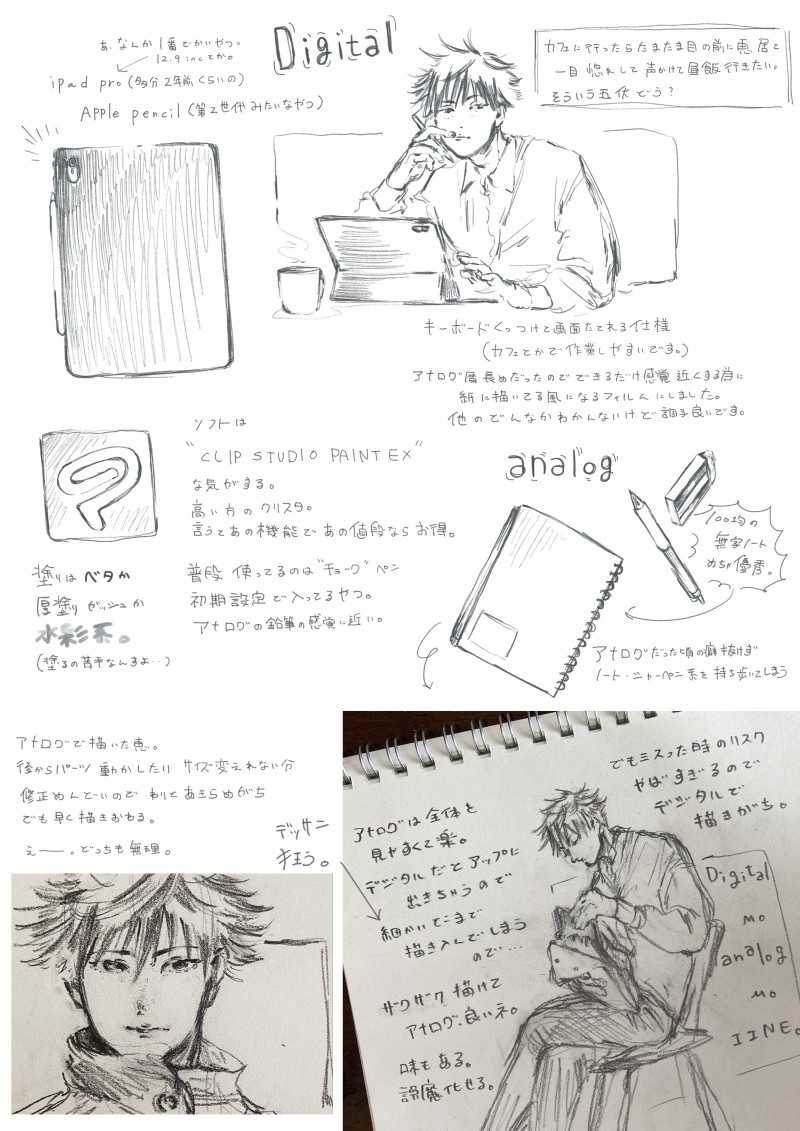 Digital
あ、なんか1番でかいやつ。
12.9incとか。
iPad pro(多分2年前くらいの)
Apple pencil(第2世代みたいなやつ)
カフェに行ったらたまたま目の前に恵居て
一目惚れして声かけて昼飯行きたい。
そういう五伏どう?
キーボードくっつけて画面たてれる仕様
(カフェとかで作業しやすいです。)
アナログ層長めだったのでできるだけ感覚近くする為に
紙に描いてる風になるフィルムにしました。
他のどんなかわかんないけど調子良いです。
ソフトは
"CLIP STUDIO PAINT EX"
な気がする。
高い方のクリスタ。
言うてあの機能であの値段ならお得。
塗りはベタか
厚塗りガッシュか
水彩系。
(塗るの苦手なんすよ…)
普段使ってるのは"チョーク"ペン
初期設定で入ってるやつ。
アナログの鉛筆の感覚に近い。
analog
100均の
無字ノート
めちゃ優秀。
アナログだった頃の癖抜けず
ノート・シャーペン系を持ち歩いてしまう
アナログで描いた恵。
後からパーツ動かしたりサイズ変えれない分
修正めんどいのでわりとあきらめがち
でも早く描きおわる。
えー。どっちも無理。
デッサン
狂う。
アナログは全体を
見やすくて楽。
デジタルだとアップに
出きちゃうので
細かいとこまで
描き込んでしまう
ので…
ザクザク描けて
アナログ、良いネ。
味もある。
誤魔化せる。
でもミスった時のリスク
やばすぎるので
デジタルで
描きがち。
Digital
mo
analog
mo
IINE。